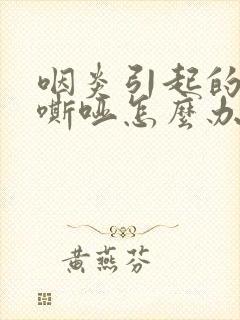 咽炎引起的
嘶哑怎麼办
黄燕芬